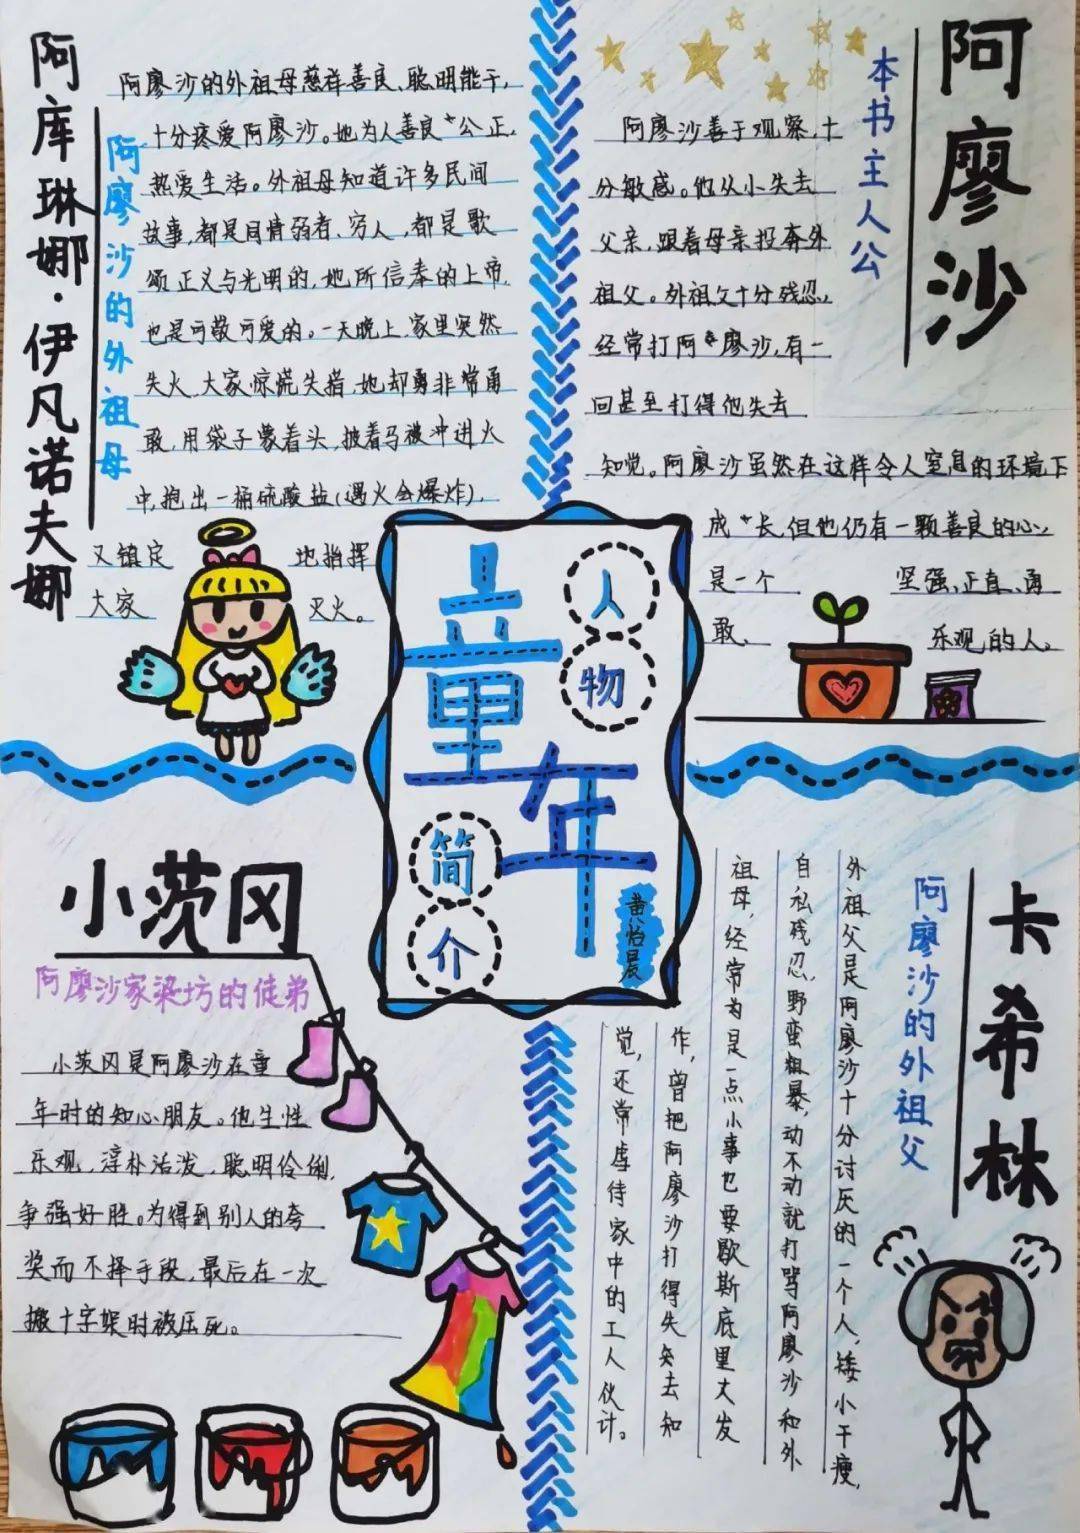 阿库琳娜·伊凡诺夫娜
阿廖沙的外祖母
阿廖沙的外祖母慈祥善良、聪明能干,
十分疼爱阿廖沙。她为人善良公正,
热爱生活。外祖母知道许多民间
故事,都是同情弱者、穷人,都是歌
颂正义与光明的,她所信奉的上帝,
也是可敬可爱的。一天晚上,家里突然
失火,大家惊慌失措,她却勇非常勇
敢,用袋子蒙着头,披着马被冲进火
中,抱出一桶硫酸盐(遇火会爆炸),
又镇定 地指挥
大家 灭火。
阿廖沙
本书主人公
阿廖沙善于观察,十
分敏感。他从小失去
父亲,跟着母亲投奔外
祖父。外祖父十分残忍,
经常打阿廖沙,有一
回甚至打得他失去
知觉。阿廖沙虽然在这样令人窒息的环境下
成长,但他仍有一颗善良的心,
是一个 坚强、正直、勇
敢、 乐观的人。
童年
人物
简介
黄怡晨
小茨冈
阿廖沙家染坊的徒弟
小茨冈是阿廖沙在童
年时的知心朋友。他生性
乐观,淳朴活泼,聪明伶俐,
争强好胜。为得到别人的夸
奖而不择手段,最后在一次
搬十字架时被压死。
卡希林
阿廖沙的外祖父
外祖父是阿廖沙十分讨厌的一个人,矮小干瘦,
自私残忍,野蛮粗暴,动不动就打骂阿廖沙和外
祖母,经常为是一点小事也要歇斯底里大发
作,曾把阿廖沙打得失去知
觉,还常虐待家中的工人伙计。